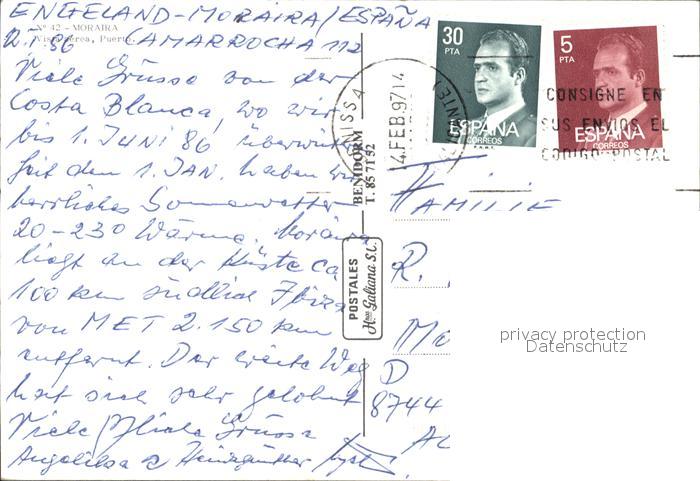 ENGELAND-MORAIRA/ESPAÑA
Nº 42 - MORAIRA
Vista aérea, Puerto
2.1.86 CAMARROCHA 112
Viele Grüsse von der
Costa Blanca, wo wir
bis 1. JUNI 86 überwintern
Seit dem 1. JAN. haben wir
herrliches Sonnenwetter
20-23° Wärme. Moraira
liegt an der Küste ca
100 km südlich Ibiza
von MET 2.150 km
entfernt. Der weite Weg
hat sich sehr gelohnt
Viele liebe Grüsse
Angelika & Heinzgünther
BENIDORM
T. 85 71 52
POSTALES
Hnos Galiana S.L.
30
PTA
ESPAÑA
CORREOS
5
PTA
ESPAÑA
CORREOS
14 FEB. 97 14
CONSIGNE EN
SUS ENVIOS EL
CODIGO POSTAL
FAMILIE
R.
D
8744
privacy protection
Datenschutz